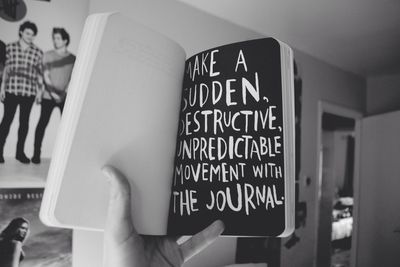 MAKE A
SUDDEN,
DESTRUCTIVE,
UNPREDICTABLE
MOVEMENT WITH
THE JOURNAL.